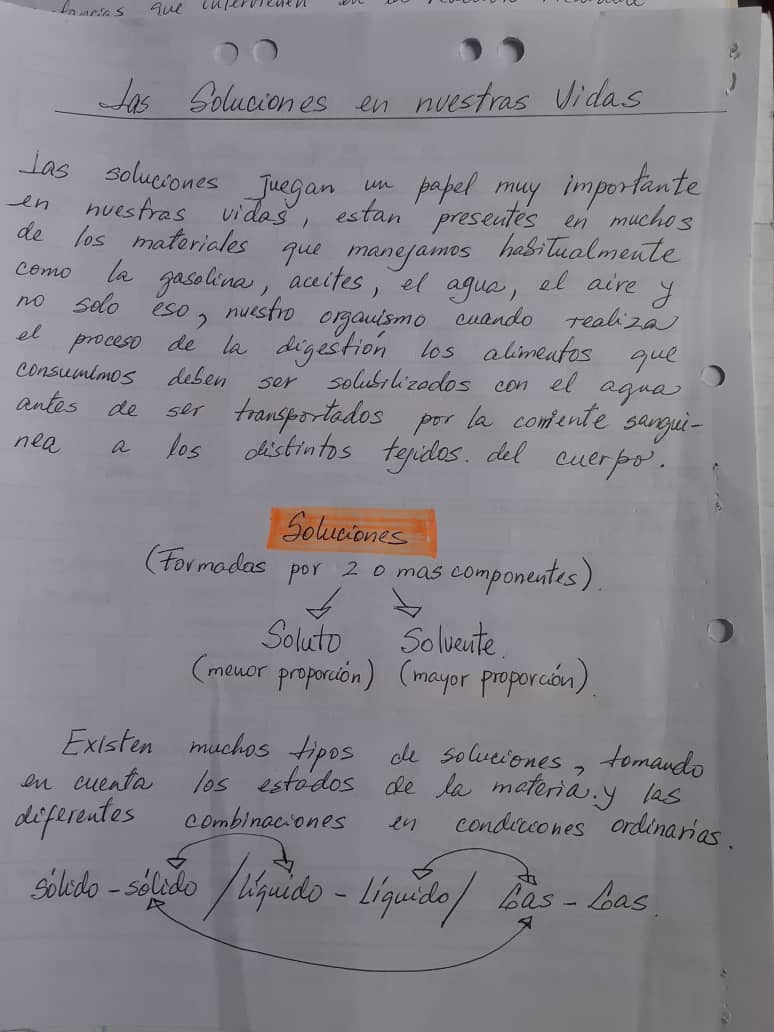 que intervienen en
Las Soluciones en nuestras Vidas
Las soluciones Juegan un papel muy importante
en nuestras vidas, estan presentes en muchos
de los materiales que manejamos habitualmente
como la gasolina, aceites, el agua, el aire y
no solo eso, nuestro organismo cuando realiza
el proceso de la digestión los alimentos que
consumimos deben ser solubilizados con el agua
antes de ser transportados por la corriente sangui-
nea a los distintos tejidos. del cuerpo.
Soluciones
(Formadas por 2 o mas componentes).
Soluto Solvente.
(menor proporción) (mayor proporción).
Existen muchos tipos de soluciones, tomando
en cuenta los estados de la materia. y las
diferentes combinaciones en condiciones ordinarias.
sólido - sólido / líquido - Líquido / Gas - Gas.